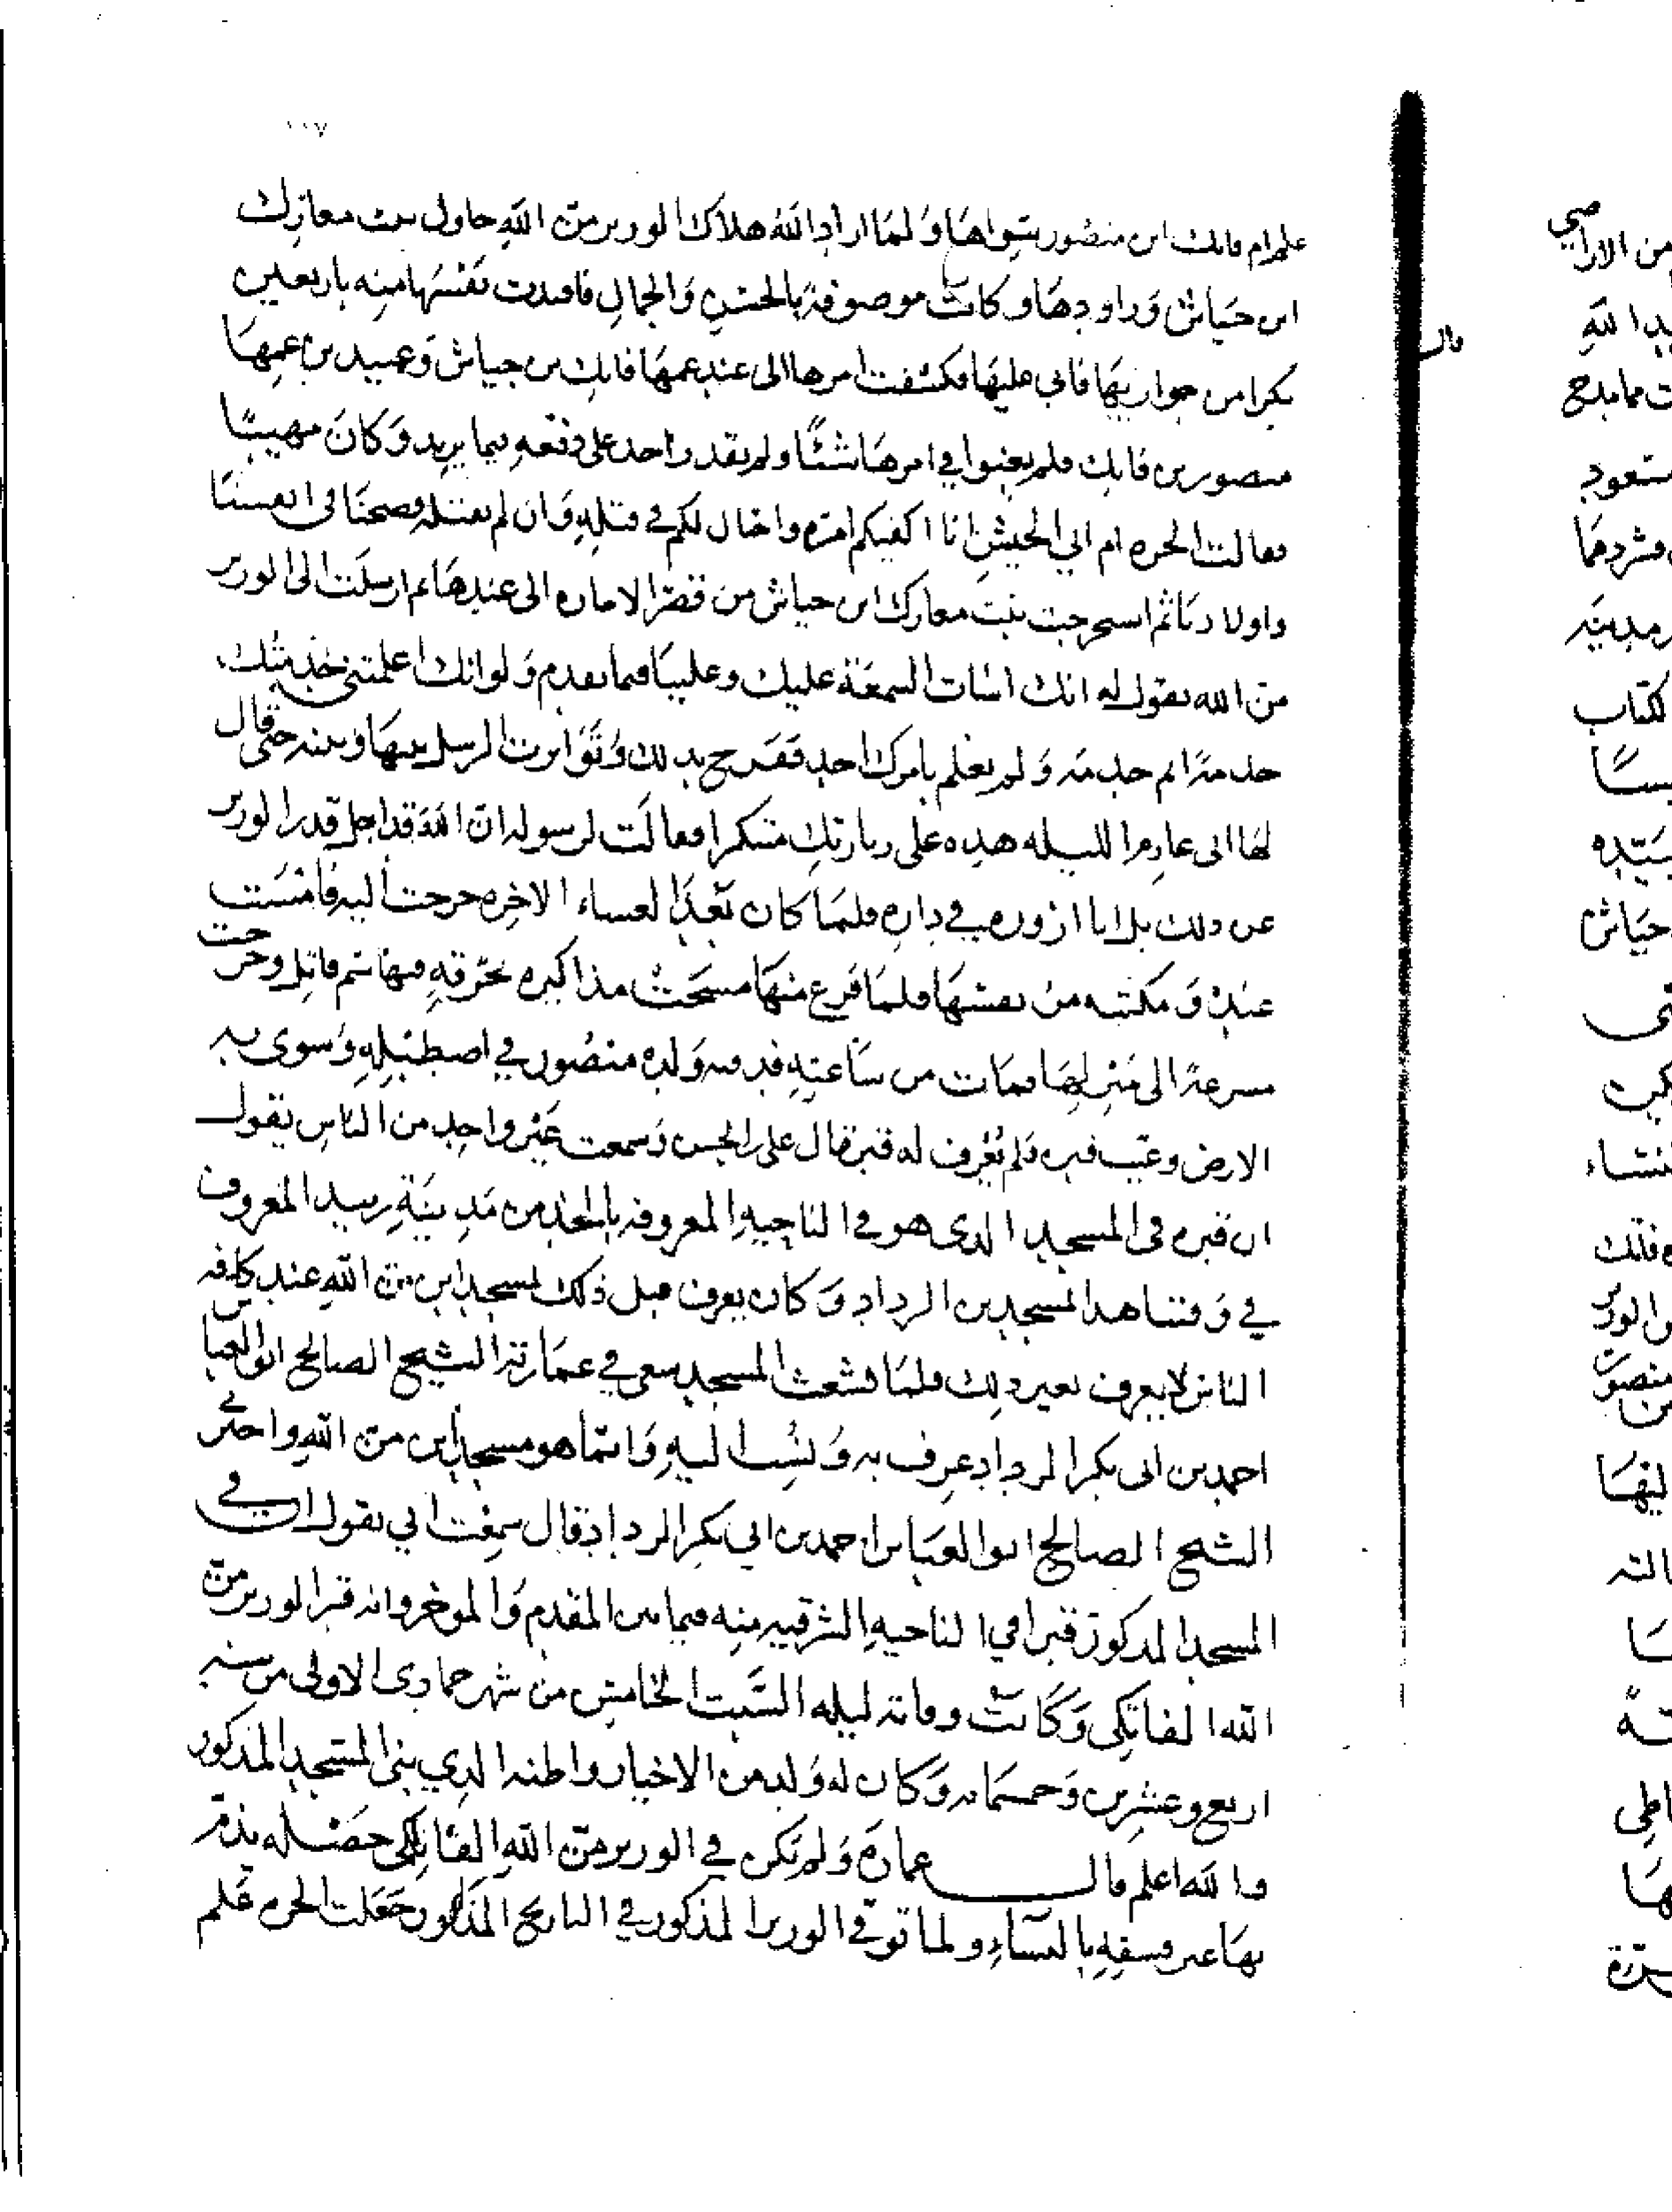 ١٠٧
علم ام فاتك ابن منصور بسواها ولما اراد الله هلاك الوزير من الله حاول بنت معارك
ابن جياش وراودها وكانت موصوفة بالحسن والجمال فافتدت نفسها منه باربعين
بكرا من جواريها فابى عليها فكشفت امرها الى عند عمها فاتك بن جياش وعبيد بن عمها
منصور بن فاتك فلم يغنوا في امرها شئا ولم يقدر احد على دفعه فيما يريد وكان مهيبا
فقالت الحره ام ابي الجيش انا اكفيكم امره واحتال لكم في قتله وان لم نقتله فضحنا في انفسنا
واولادنا ثم استخرجت بنت معارك ابن جياش من قصر الاماره الى عندها ثم ارسلت الى الوزير
من الله تقول له انك اسات السمعة عليك وعلينا فيما تقدم ولو انك اعلمتني خدمتك
خدمة اتم خدمه ولم يعلم بامرك احد ففرح بذلك وتواترت الرسل بينها وبينه حتى قال
لها انى عازم الليله هذه على زيارتك متنكرا فقالت لرسوله ان الله قد اجل قدر الوزير
عن ذلك بل انا ازوره في داره فلما كان بعد العشاء الاخره خرجت اليه فامست
عنده ومكنته من نفسها فلما فرغ منها مسحت مذاكيره بخرقه فيها سم قاتل وخرجت
مسرعة الى منزلها فمات من ساعته فدفنه ولده منصور في اصطبله وسوى به
الارض وغيب قبره فلم يعرف له قبر قال علي بن الحسن وسمعت غير واحد من الناس يقول
ان قبره في المسجد الذي هو في الناحيه المعروفه من مدينة زبيد المعروف
في وقتنا هذا بمسجد بن الرداد وكان يعرف قبل ذلك بمسجد ابن من الله عند كافه
الناس لا يعرف بغير ذلك فلما تشعث المسجد سعى في عمارته الشيخ الصالح ابو العباس
احمد بن ابى بكر الرداد عرف به ونسب اليه وانما هو مسجد ابن من الله واخبرني
الشيخ الصالح ابو العباس احمد بن ابي بكر الرداد قال سمعت ابي يقول ان في
المسجد المذكور قبرا في الناحيه الشرقيه منه فيما بين المقدم والموخر وانه قبر الوزير من
الله الفاتكى وكانت وفاته ليله السبت الخامس من شهر جمادى الاولى من سنه
اربع وعشرين وخمسمايه وكان له ولد من الاخيار واظنه الذي بنى المسجد المذكور
والله اعلم قال عمارة ولم تكن في الوزير من الله الفاتكى خصله يذم
بها غير فسقه بالنساء ولما توفي الوزير المذكور في التاريخ المذكور جعلت الحره علم
قال
من الاراضي
مسعود
مدينه
لكتاب
سيده
جياش
فاتك
الوزير
منصور